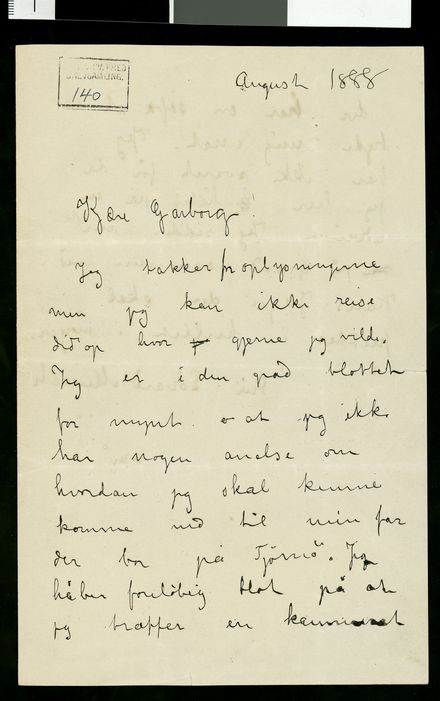 BREVSAMLING.
140
August 1888
Kjære Garborg!
Jeg takker for oplysningerne
men jeg kan ikke reise
did op hvor gjerne jeg vilde.
Jeg er i den grad blottet
for mynt at jeg ikke
har nogen anelse om
hvordan jeg skal kunne
komme ned til min far
der bor på Tjömö. Jeg
håber foreløbig blot på at
jeg træffer en